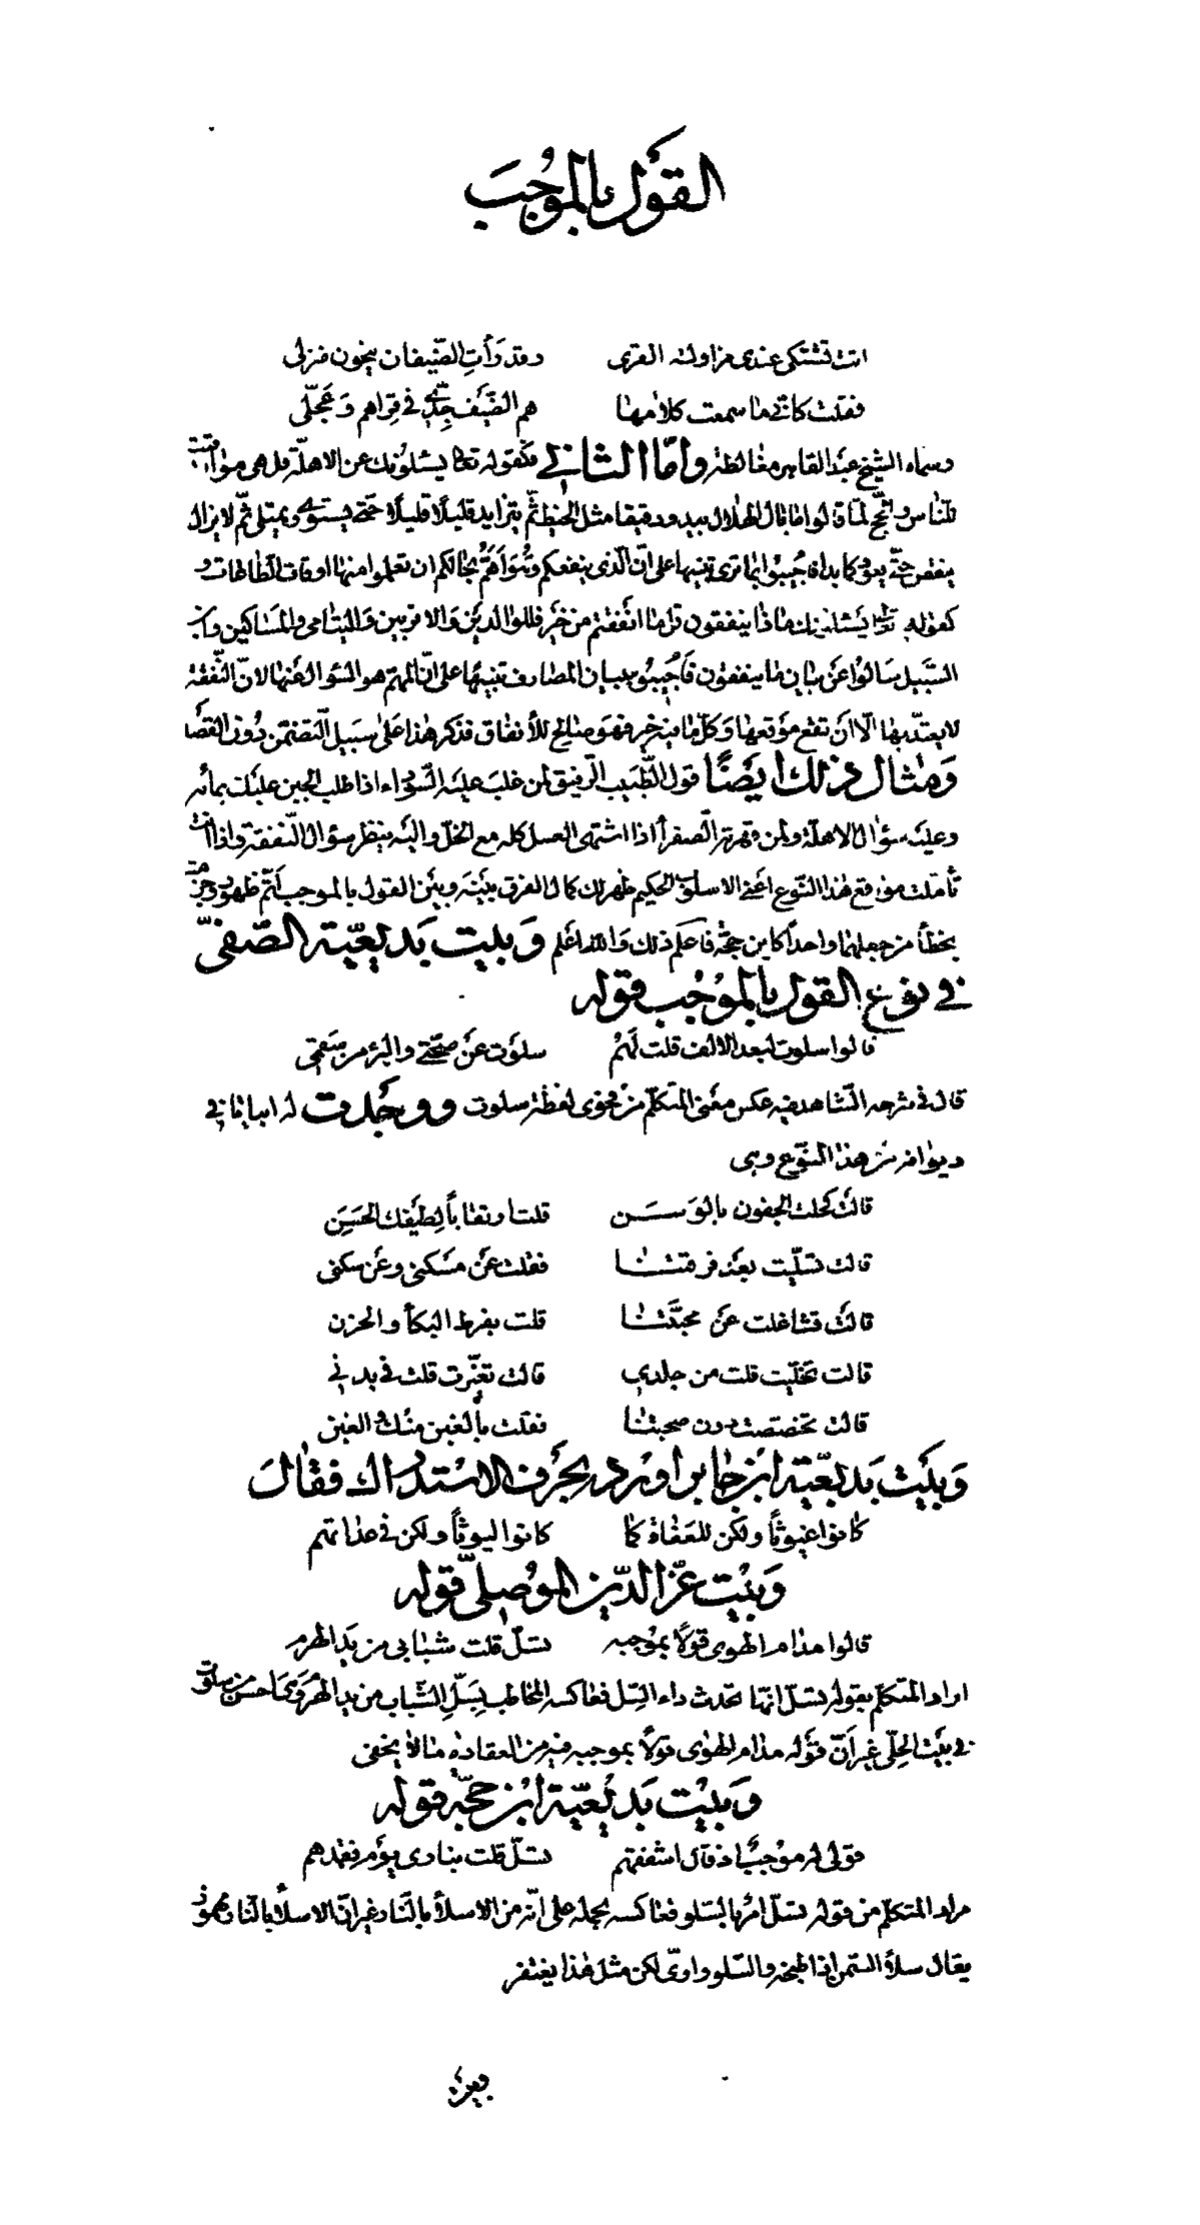 القول بالموجب
اتت تشتكي عندي مزاولة القرى وقد رأت الضيفان ينحون منزلي
فقلت كاني ما سمعت كلامها هم الضيف جدي في قراهم وعجلي
وسماه الشيخ عبد القاهر مغالطة واما الثاني فكقوله تعالى يسئلونك عن الاهلة قل هي مواقيت
للناس والحج لما قالوا ما بال الهلال يبدو دقيقا مثل الخيط ثم يتزايد قليلا قليلا حتى يستوي ويمتلي ثم لا يزال
ينقص حتى يعود كما بدا فاجيبوا بما ترى تنبيها على ان الذي ينفعكم وهو اهم بحالكم ان تعلموا منها اوقات الطاعات و
كقوله تعالى يسئلونك ماذا ينفقون قل ما انفقتم من خير فللوالدين والاقربين واليتامى والمساكين وابن
السبيل سالوا عن بيان ما ينفقون فاجيبوا ببيان المصارف تنبيها على ان المهم هو السؤال عنها لان النفقة
لا يعتد بها الا ان تقع موقعها وكل ما فيه خير فهو صالح للانفاق فذكر هذا على سبيل التضمن دون القصد
ومثال ذلك ايضا قول الطبيب الرفيق لمن غلب عليه السوداء اذا طلب الجبن عليك بمائه
وعليه سؤال الاهلة ولمن قهرته الصفرا اذا اشتهى العسل كله مع الخل واليه ينظر سؤال النفقة واذا انت
تأملت موقع هذا النوع اعني الاسلوب الحكيم ظهر لك كمال الفرق بينه وبين القول بالموجب اتم ظهور وجزمت
بخطأ من جعلهما واحدا كابن حجة فاعلم ذلك والله اعلم وبيت بديعية الصفي
في نوع القول بالموجب قوله
قالوا سلوت لبعد الالف قلت لهم سلوت عن صحتي والبرء من سقمي
قال في شرحه الشاهد فيه عكس معنى المتكلم من فحوى لفظة سلوت ووجدت له ابياتا في
ديوانه من هذا النوع وهي
قالت كحلت الجفون بالوسن قلت ارتقابا لطيفك الحسن
قالت تسليت بعد فرقتنا فقلت عن مسكني وعن سكني
قالت تشاغلت عن محبتنا قلت بفرط البكا والحزن
قالت تخليت قلت من جلدي قالت تغيرت قلت في بدني
قالت تخصصت دون صحبتنا فقلت بالغبن منك والغبن
وبيت بديعية ابن جابر اورد بحرف الاستدراك فقال
كانوا غيوثا ولكن للعفاة كما كانوا ليوثا ولكن في عداتهم
وبيت عز الدين الموصلي قوله
قالوا مدام الهوى قولا بموجبه تسل قلت شبابي من يد الهرم
اراد المتكلم بقوله تسل انها تحدث داء السل فعاكسه المخاطب بسل الشباب من يد الهرم وما احسن من سلوت
في بيت الحلي غير ان قوله مدام الهوى قولا بموجبه فيه من العقادة ما لا يخفى
وبيت بديعية ابن حجة قوله
قولي له موجب اذ قال اشفقهم تسل قلت بناري يوم فقدهم
مراد المتكلم من قوله تسل امره بالتسلو فعاكسه بحمله على انه من الاسلا بالنار غير ان الاسلا بالنار مهموز
يقال سلأ السمن اذا طبخه والسلو واوي لكن مثل هذا يغتفر